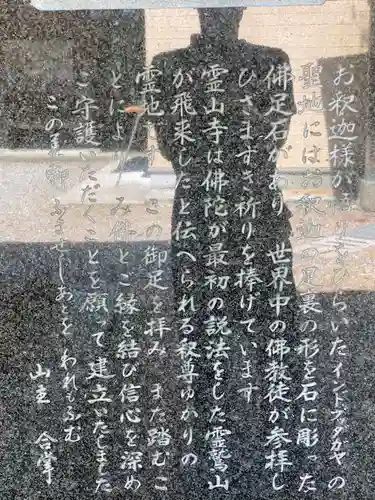 お釈迦様が悟りをひらいたインドブダガヤの
聖地にはお釈迦の足裏の形を石に彫った
佛足石があり 世界中の佛教徒が参拝し
ひざまずき祈りを捧げています
霊山寺は佛陀が最初の説法をした霊鷲山
が飛来したと伝へられる釈尊ゆかりの
霊地です この御足を拝み また踏むこ
とにより み佛とご縁を結び信心を深め
ご守護いただくことを願って建立いたしました
この ふませしあとを われもふむ
山主 合掌